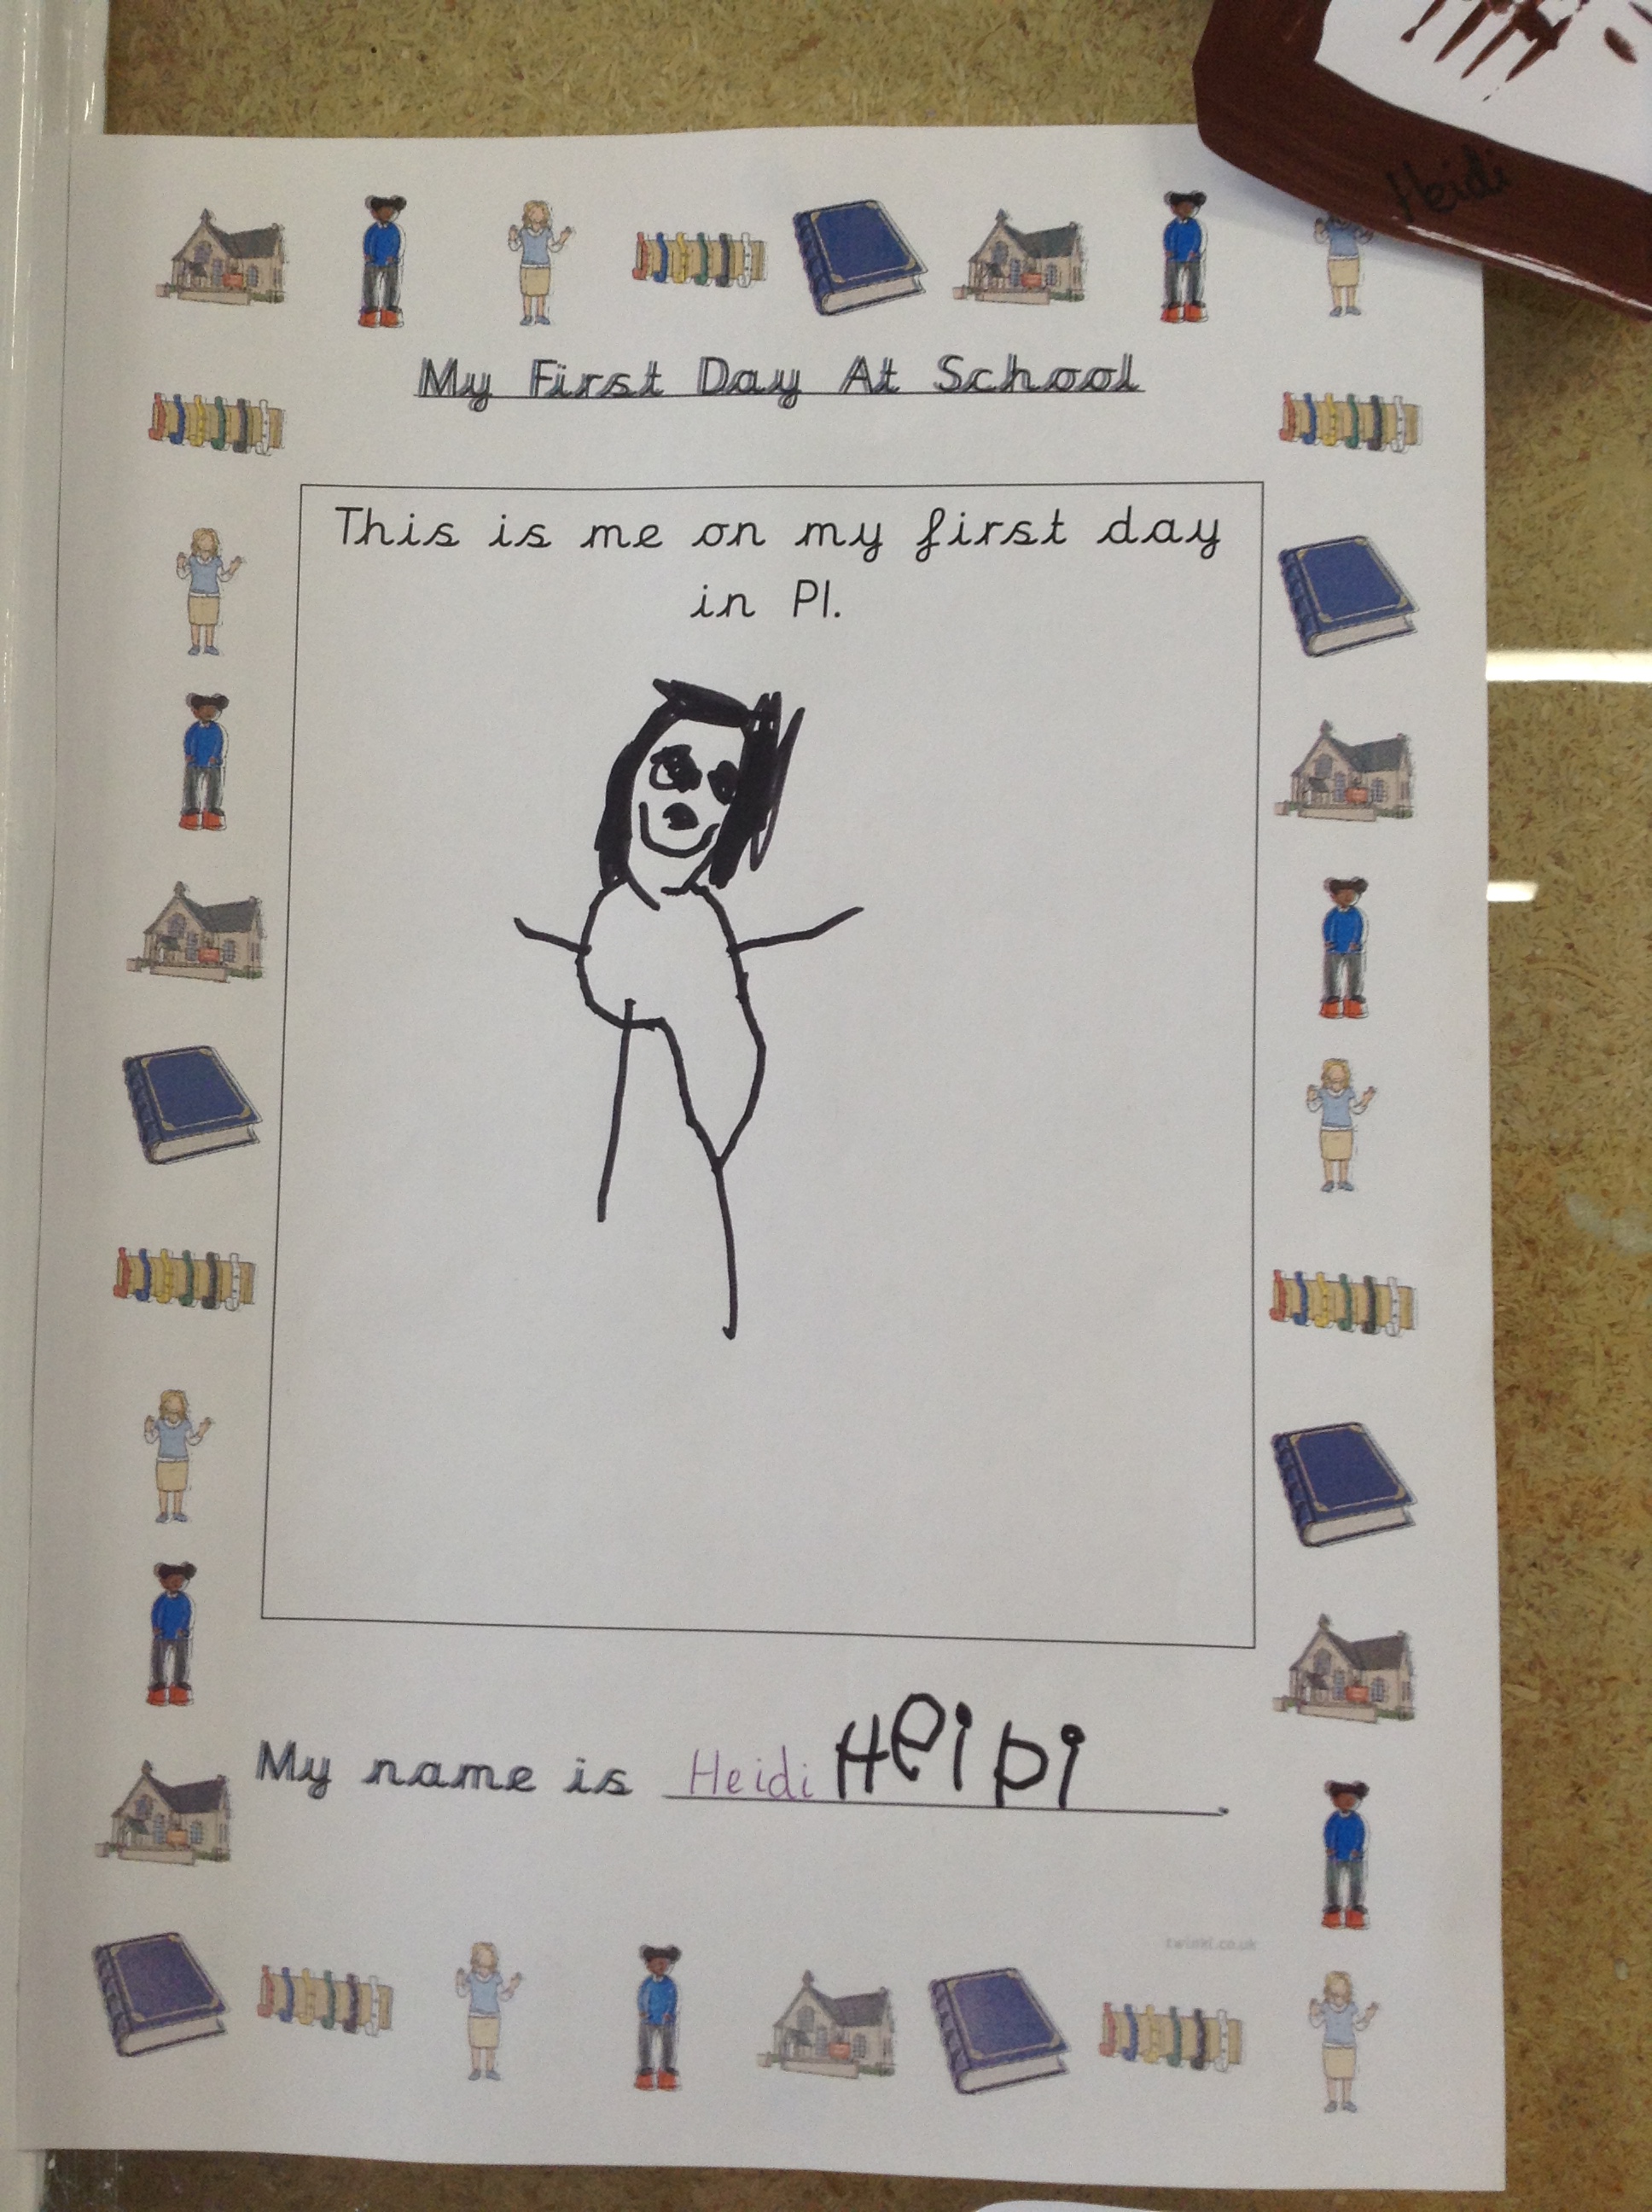 Heidi
My First Day At School
This is me on my first day
in P1.
My name is Heidi Heipi.
twinkl.co.uk